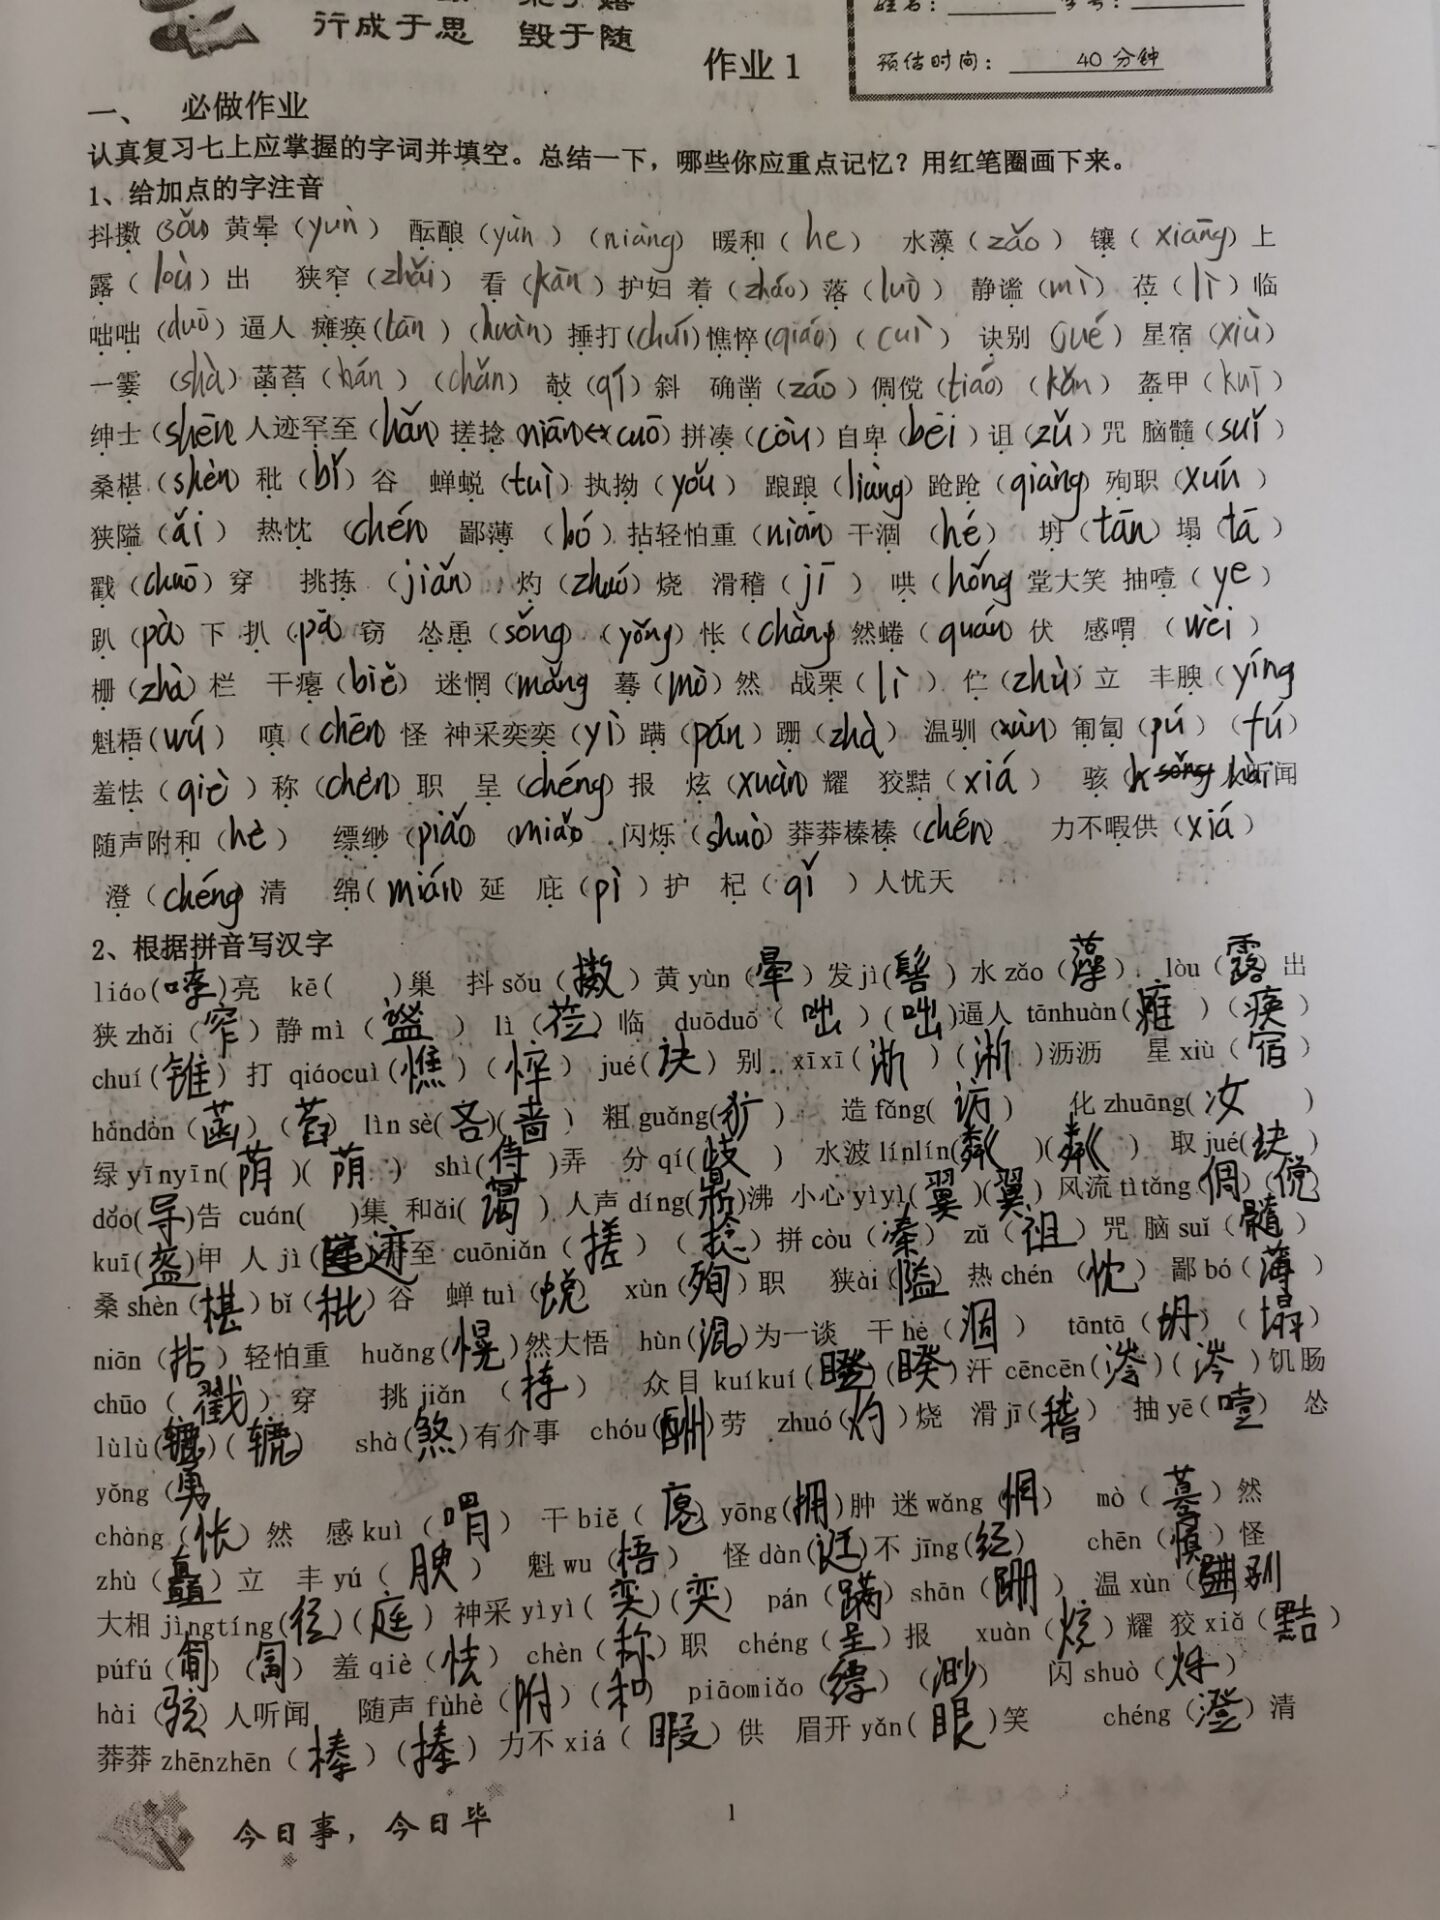 行成于思 毁于随
预估时间：40 分钟
作业 1
一、 必做作业
认真复习七上应掌握的字词并填空。总结一下，哪些你应重点记忆？用红笔圈画下来。
1、给加点的字注音
抖擞（sǒu）黄晕（yùn） 酝酿（yùn）（niàng） 暖和（he） 水藻（zǎo） 镶（xiāng）上
露（loù）出 狭窄（zhǎi） 看（kān）护妇 着（zháo）落（luò） 静谧（mì） 莅（lì）临
咄咄（duō）逼人 瘫痪（tān）（huàn）捶打（chuí）憔悴（qiáo）（cuì） 诀别（jué）星宿（xiù）
一霎（shà）菡萏（hán）（chǎn） 攲（qī）斜 确凿（záo）倜傥（tiáo）（kǎn） 盔甲（kuī）
绅士（shēn）人迹罕至（hǎn）搓捻（niān cuō）拼凑（còu）自卑（bēi）诅（zǔ）咒 脑髓（suǐ）
桑椹（shèn）秕（bǐ）谷 蝉蜕（tuì）执拗（yǒu） 踉踉（liàng）跄跄（qiàng）殉职（xún）
狭隘（ǎi） 热忱（chén） 鄙薄（bó）拈轻怕重（niān）干涸（hé） 坍（tān）塌（tā）
戳（chuō）穿 挑拣（jiǎn） 灼（zhuó）烧 滑稽（jī） 哄（hǒng）堂大笑 抽噎（ye）
趴（pà）下 扒（pā）窃 怂恿（sǒng）（yǒng）怅（chàng）然蜷（quán）伏 感喟（wèi）
栅（zhà）栏 干瘪（biě） 迷惘（mǎng） 蓦（mò）然 战栗（lì） 伫（zhù）立 丰腴（yíng）
魁梧（wú） 嗔（chēn）怪 神采奕奕（yì）蹒（pán）跚（zhà） 温驯（xùn）匍匐（pú）（fú）
羞怯（qiè）称（chèn）职 呈（chéng）报 炫（xuàn）耀 狡黠（xiá） 骇（hài）听闻
随声附和（hè） 缥缈（piǎo）（miǎo）闪烁（shuò）莽莽榛榛（chén） 力不暇供（xiá）
澄（chéng）清 绵（mián）延 庇（pì）护 杞（qǐ）人忧天
2、根据拼音写汉字
liáo（嘹）亮 kē（ ）巢 抖 sǒu（擞）黄 yùn（晕）发 jì（髻）水 zǎo（藻） lòu（露）出
狭 zhǎi（窄）静 mì（谧） lì（莅）临 duōduō（咄）（咄）逼人 tānhuàn（瘫）（痪）
chuí（锥）打 qiáocuì（憔）（悴） jué（诀）别 xīxī（淅）（淅）沥沥 星 xiù（宿）
hàndàn（菡）（萏） lìn sè（吝）（啬） 粗 guǎng（犷） 造 fǎng（访） 化 zhuāng（汝）
绿 yīnyīn（荫）（荫） shì（侍）弄 分 qí（歧） 水波 línlín（粼）（粼） 取 jué（诀）
dǎo（导）告 cuán（ ）集 和ǎi（蔼）人声 dǐng（鼎）沸 小心 yìyì（翼）（翼）风流 tìtǎng（倜）（傥）
kuī（盔）甲 人 jì（迹）罕至 cuōniǎn（搓）（捻）拼 còu（凑） zǔ（祖）咒 脑 suǐ（髓）
桑 shèn（椹）bǐ（秕）谷 蝉 tuì（蜕） xùn（殉）职 狭ài（隘） 热 chén（忱） 鄙 bó（薄）
niān（拈）轻怕重 huǎng（幌）然大悟 hùn（混）为一谈 干 hé（涸） tāntā（坍）（塌）
chūo（戳）穿 挑 jiǎn（拣） 众目 kuíkuí（睽）（睽）汗 cēncēn（涔）（涔）饥肠
lùlù（辘）（辘） shà（煞）有介事 chóu（酬）劳 zhuó（灼）烧 滑 jī（稽） 抽 yē（噎） 怂
yǒng（勇）
chàng（怅）然 感 kuì（喟） 干 biě（ ）yōng（拥）肿 迷 wǎng（惘） mò（蓦）然
zhù（矗）立 丰 yú（腴） 魁 wu（梧） 怪 dàn（诞）不 jīng（经） chēn（慎）怪
大相 jìngtíng（径）（庭）神采 yìyì（奕）（奕） pán（蹒）shān（跚） 温 xùn（驯）
púfú（匍）（匐） 羞 qiè（怯） chèn（称）职 chéng（呈）报 xuàn（炫）耀 狡 xiǎ（黠）
hài（骇）人听闻 随声 fùhè（附）（和） piāomiǎo（缥）（渺） 闪 shuò（烁）
莽莽 zhēnzhēn（榛）（榛） 力不 xiá（暇）供 眉开 yǎn（眼）笑 chéng（澄）清
今日事，今日毕
1